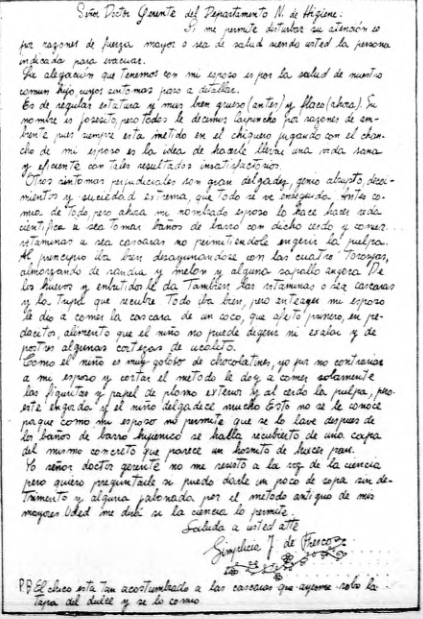 Señor Doctor Gerente del Departamento N. de Higiene:
Si me permite disturbar su atención es
por razones de fuerza mayor o sea de salud siendo usted la persona
indicada para evacuar.
La alegación que tenemos con mi esposo es por la salud de nuestro
comun hijo, cuyos sintomas paso a detallar.
Es de regular estatura y muy bien grueso (antes) y flaco (ahora). Su
nombre es Josesito, pero todos le decimos por razones de am-
biente pues siempre esta metido en el chiquero jugando con el chan-
cho de mi esposo es la idea de hacerle llevar una vida sana
y eficiente con tales resultados insatisfactorios.
Otros sintomas perjudiciales son gran delgadez, genio decai-
mientos y suciedad estrema, que todo se ve enseguida. Antes co-
mia de todo, pero ahora mi nombrado esposo lo hace hacer vida
cientifica o sea tomar baños de barro con dicho cerdo y comer
vitaminas o sea cascaras no permitiendole engerir la pulpa.
Al principio iba bien desayunandose con las cuatro toronjas,
almorzando de sandia y melon y alguna sapallo angora. De
los huevos y embutidos le da tambien las vitaminas o sea cascaras
y la tripa que recubre. Todo iba bien, pero anteayer mi esposo
le dio a comer la cascara de un coco, que primero, en pe-
dacitos, alimento que el niño no puede degerir ni y de
postres algunas cortezas de ucalito.
Como el niño es muy goloso de chocolatines, yo por no contrariar
a mi esposo y cortar el metodo le doy a comer solamente
las figuritas y papel de plomo exterior y al cerdo la pulpa, pero
este engorda y el niño delgadece mucho. Esto no se le conoce
porque como mi esposo no permite que se lo lave despues de
los baños de barro hijienico se halla recubierto de una capa
del mismo concreto que parece un hornito de hacer pan.
Yo señor doctor gerente no me resisto a la voz de la ciencia
pero quiero preguntarle si puedo darle un poco de sopa sin de-
trimento y alguna jabonada por el metodo antiguo de mis
mayores. Usted me dirá si la ciencia lo permite.
Saluda a usted atte
Simplicia J. de Fresco
P.D El chico esta tan acostumbrado a las cascaras que ayer me robo la
tapa del dulce y se lo comio